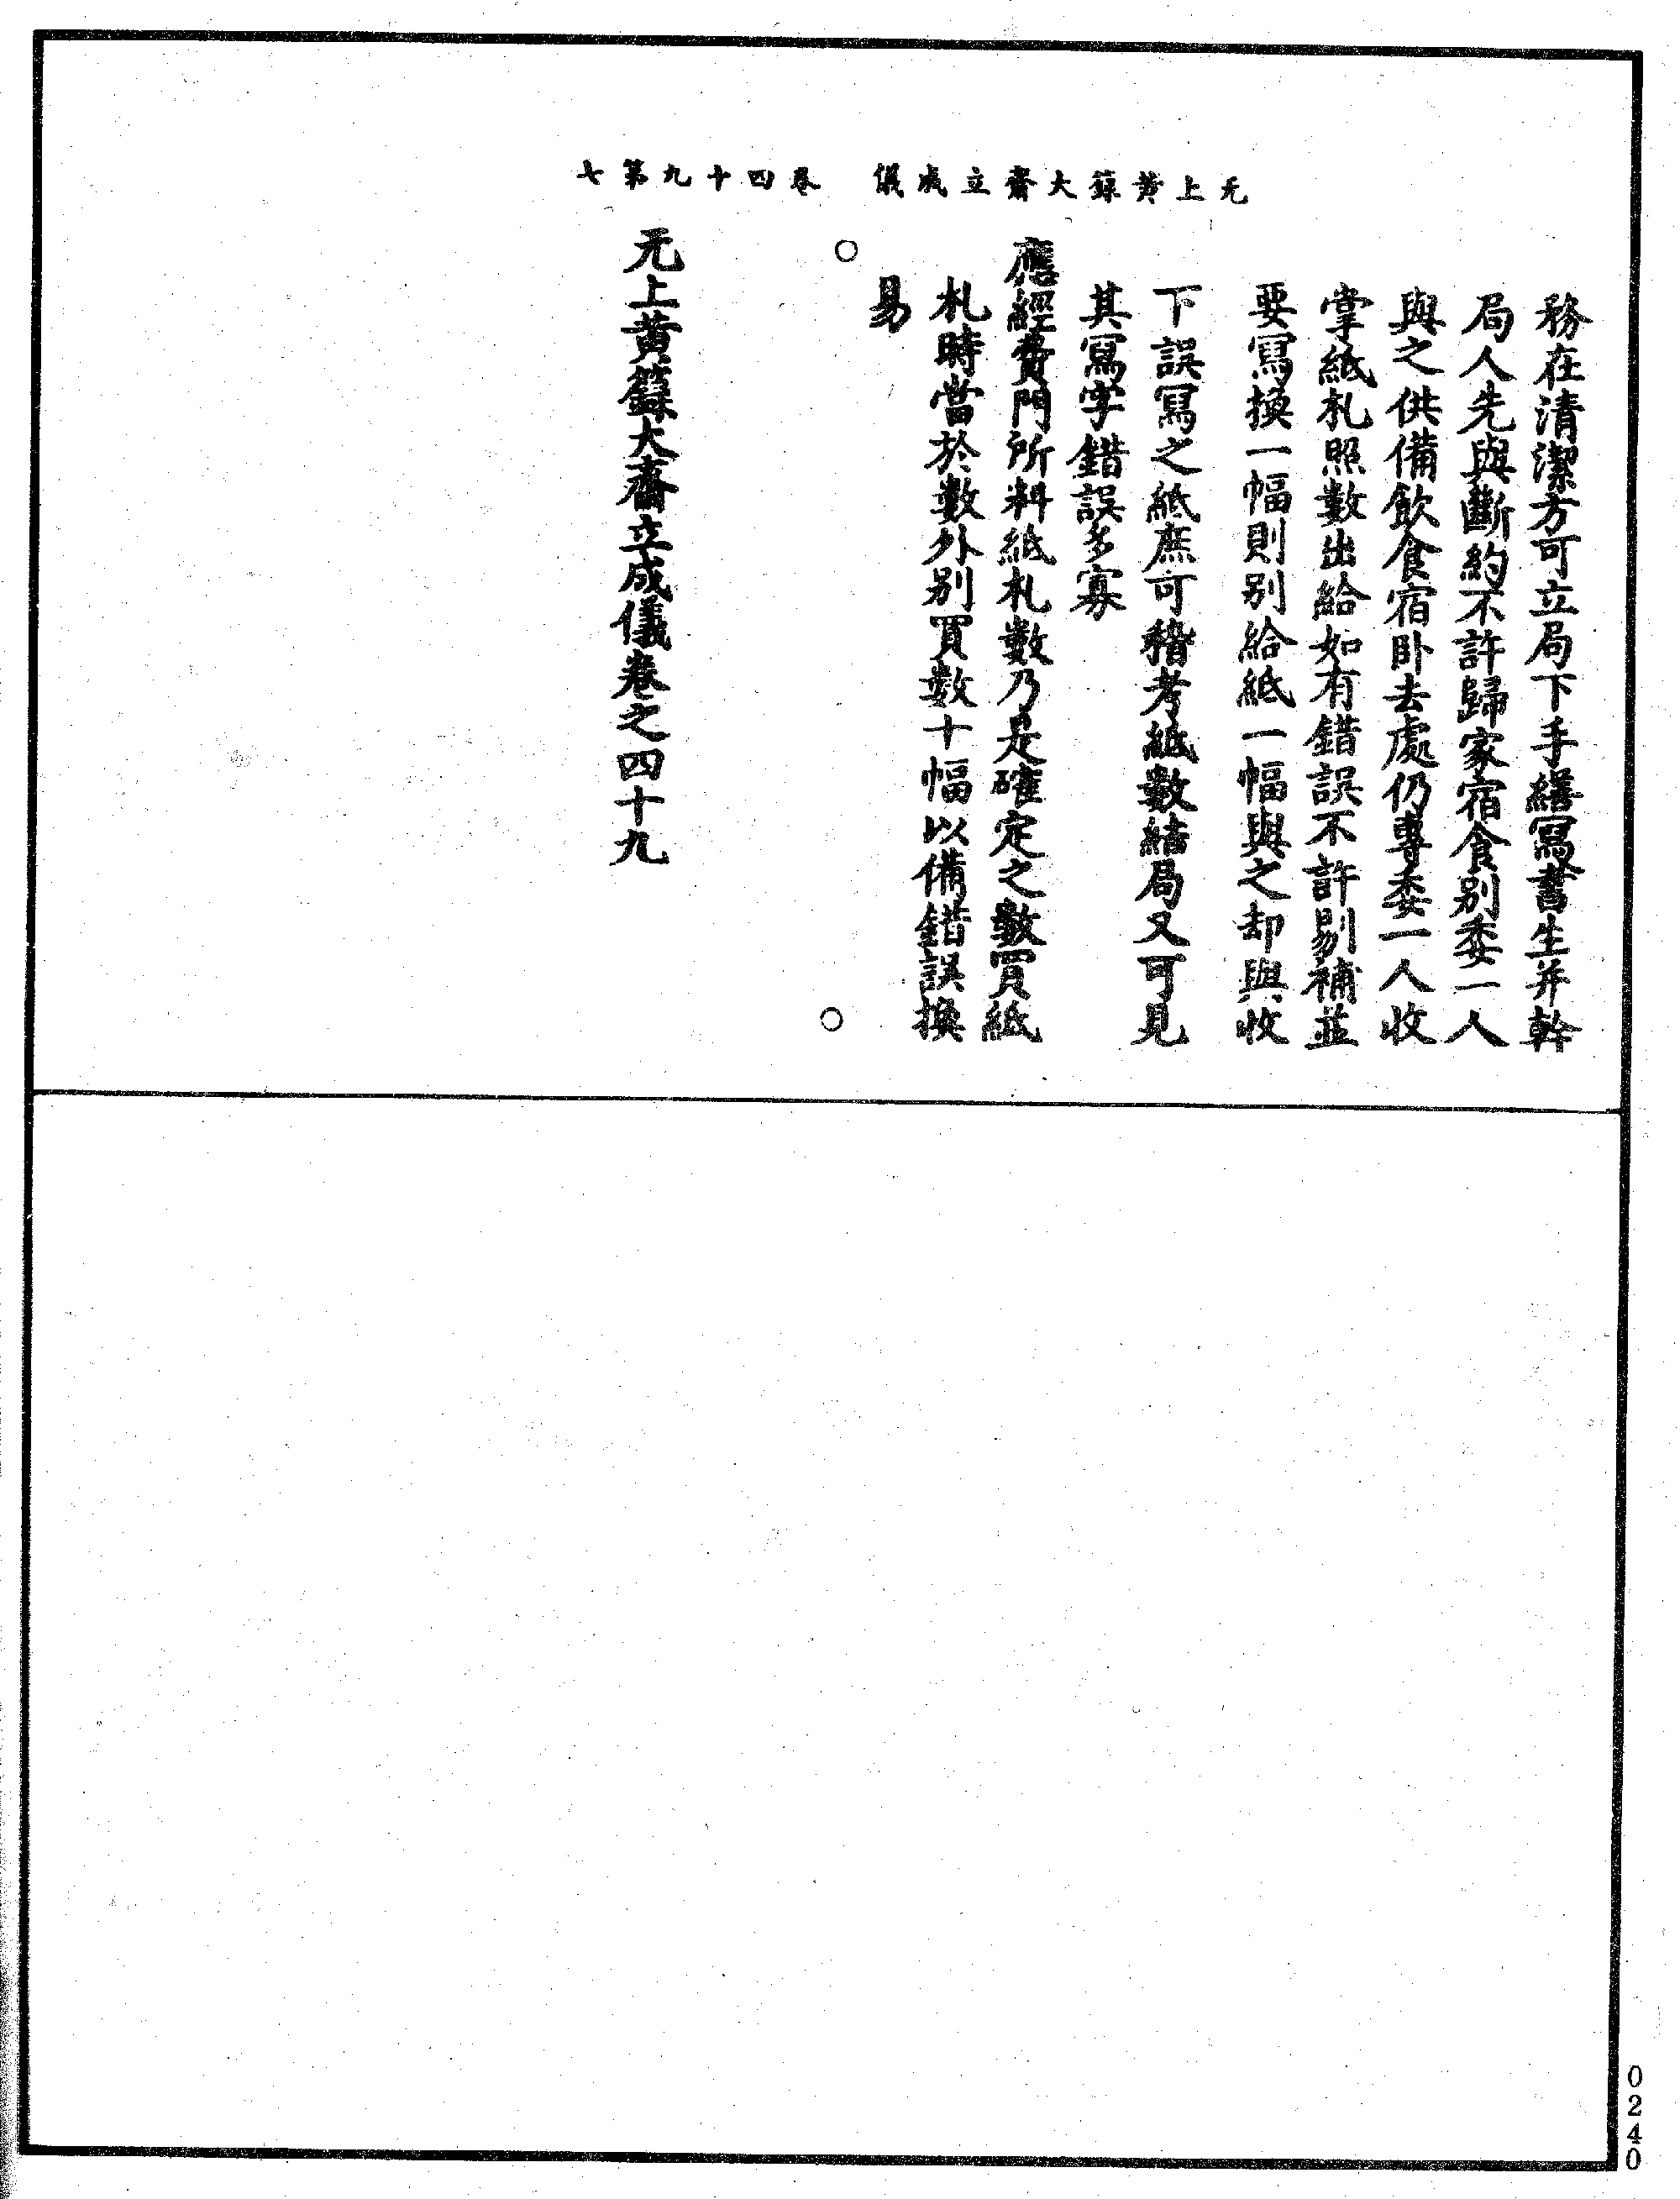 无上黃籙大齋立成儀　卷四十九第七
務在清潔方可立局下手繕寫書生并幹
局人先與斷約不許歸家宿食别委一人
與之供備飲食宿卧去處仍專委一人收
掌紙札照數出給如有錯誤不許剔補並
要寫換一幅則别給紙一幅與之却與收
下誤寫之紙庶可稽考紙數結局又可見
其寫字錯誤多寡
應經費門所料紙札數乃是確定之數買紙
札時當於數外别買數十幅以備錯誤換
易
○　○
无上黃籙大齋立成儀卷之四十九
0240